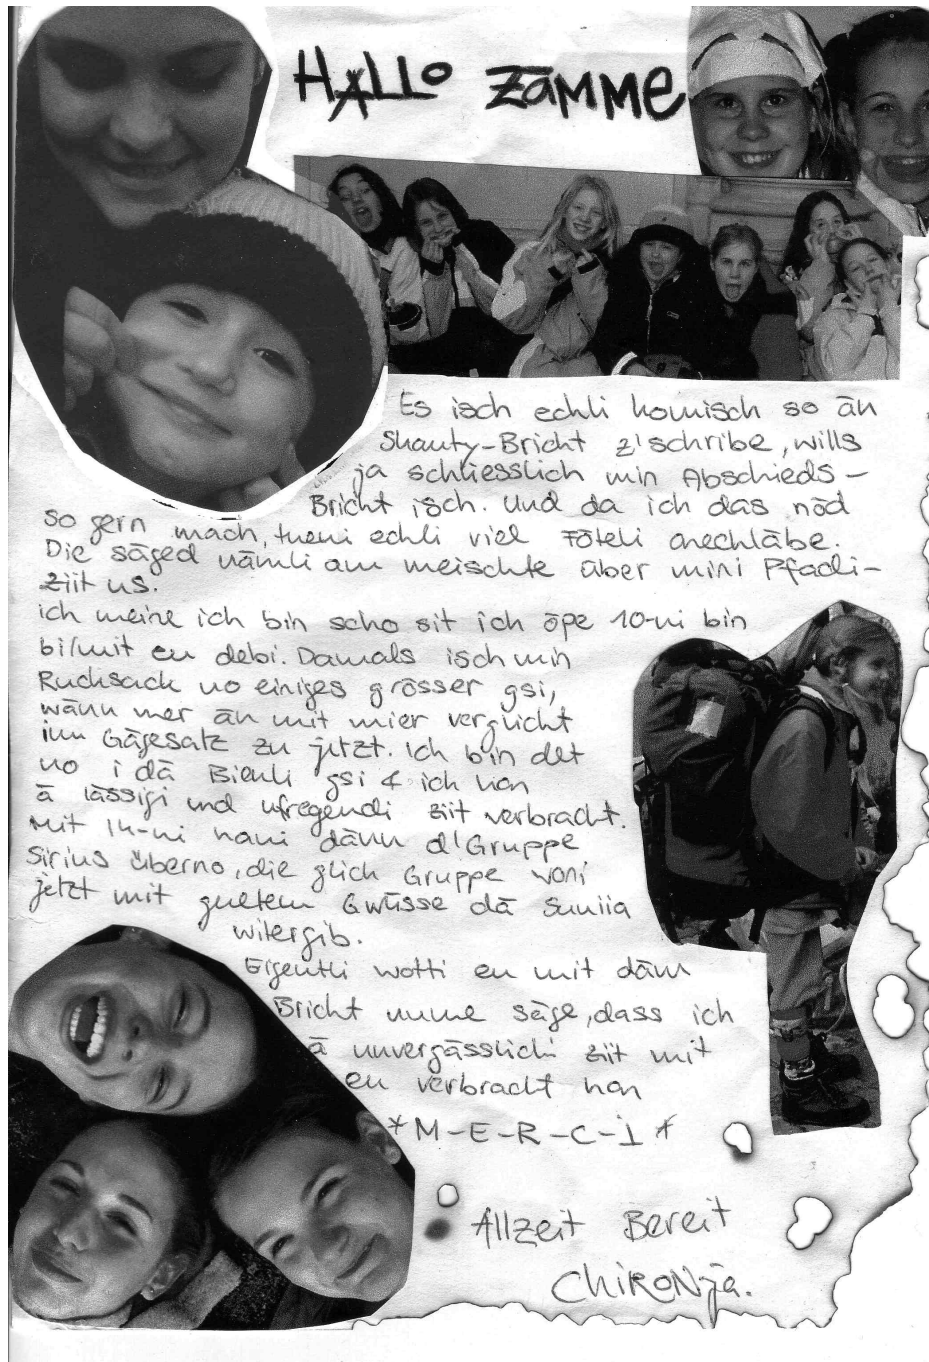 HALLO ZÄMME
Es isch echli komisch so än
Shanty-Bricht z'schribe, wills
ja schliesslich min Abschieds-
Bricht isch. Und da ich das nöd
so gern mach, tueni echli viel Föteli anechläbe.
Die säged nämli am meischte über mini Pfadi-
ziit us.
ich meine ich bin scho sit ich öpe 10-ni bin
bi/mit eu debi. Damals isch min
Rucksack no einiges grösser gsi,
wänn mer än mit mier verglicht
im Gägesatz zu jetzt. Ich bin det
no i dä Bienli gsi & ich han
ä lässigi und ufregendi ziit verbracht.
Mit 14-ni hani dänn d'Gruppe
Sirius überno, die glich Gruppe woni
jetzt mit guetem Gwüsse dä Suniia
witergib.
Eigentli wotti eu mit däm
Bricht nume säge, dass ich
ä unvergässlichi ziit mit
eu verbracht han
*M-E-R-C-i*
Allzeit Bereit
CHiRONja.